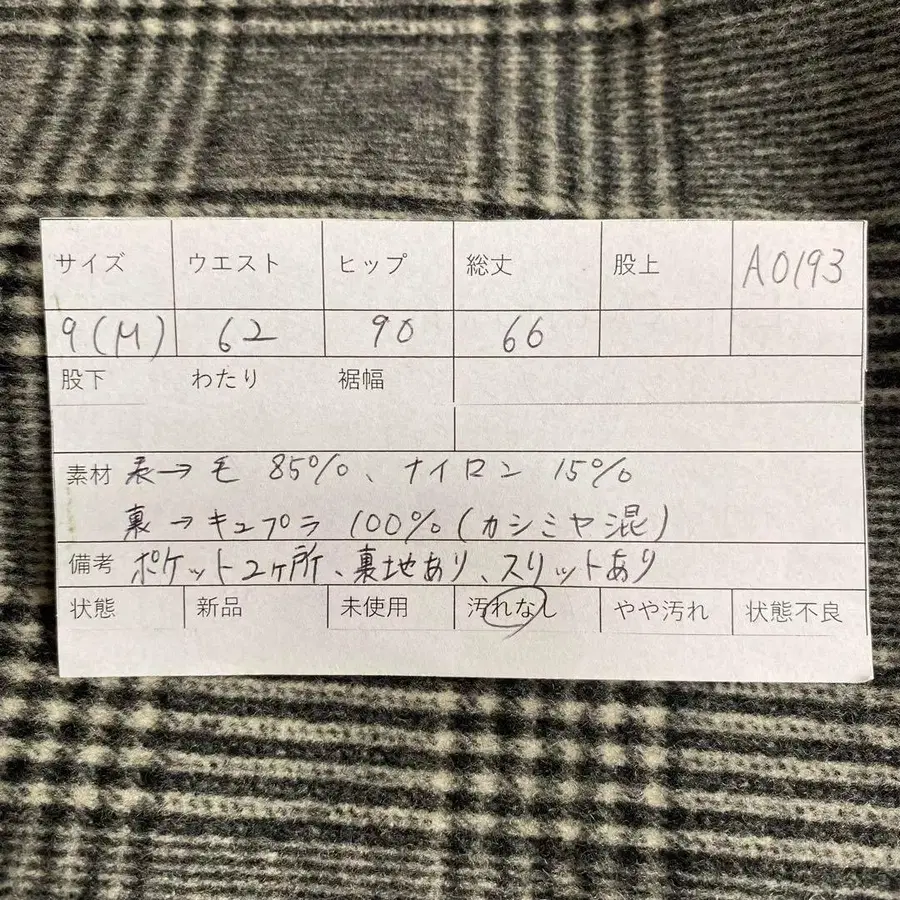 サイズ ウエスト ヒップ 総丈 股上 A0193
9(M) 62 90 66
股下 わたり 裾幅
素材 表→毛 85%、ナイロン 15%
裏→キュプラ 100%(カシミヤ混)
備考 ポケット2ヶ所、裏地あり、スリットあり
状態 新品 未使用 汚れなし やや汚れ 状態不良